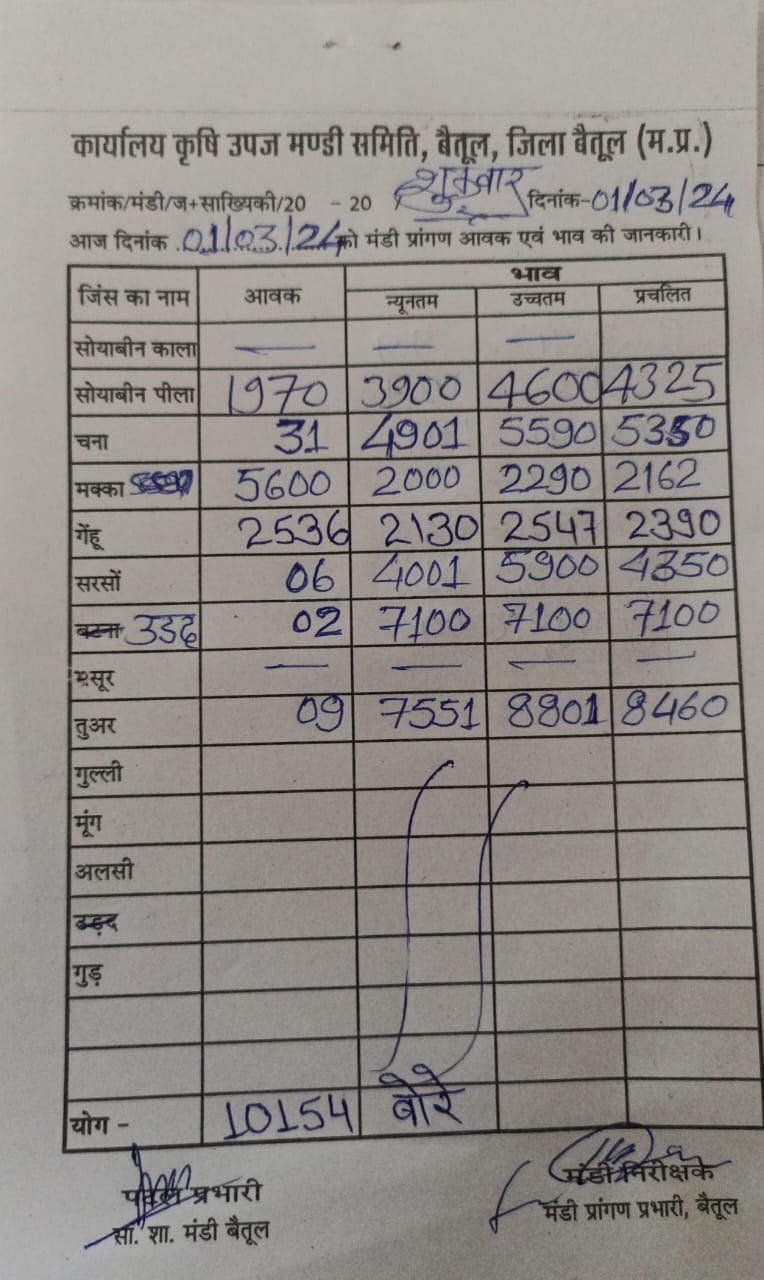 कार्यालय कृषि उपज मण्डी समिति, बैतूल, जिला बैतूल (म.प्र.)
क्रमांक/मंडी/ज+साख्यिकी/20 - 20 शुक्रवार दिनांक-01/03/24
आज दिनांक 01/03/24 को मंडी प्रांगण आवक एवं भाव की जानकारी।
जिंस का नाम आवक भाव
न्यूनतम उच्चतम प्रचलित
सोयाबीन काला — — —
सोयाबीन पीला 1970 3900 4600 4325
चना 31 4901 5590 5350
मक्का 5600 2000 2290 2162
गेंहू 2536 2130 2547 2390
सरसों 06 4001 5900 4350
बटना उडद 02 7100 7100 7100
मसूर — — — —
तुअर 09 7551 8801 8460
गुल्ली
मूंग
अलसी
उड़द
गुड़
योग - 10154 बोरे
प्रभारी मंडी निरीक्षक
सा. शा. मंडी बैतूल मंडी प्रांगण प्रभारी, बैतूल